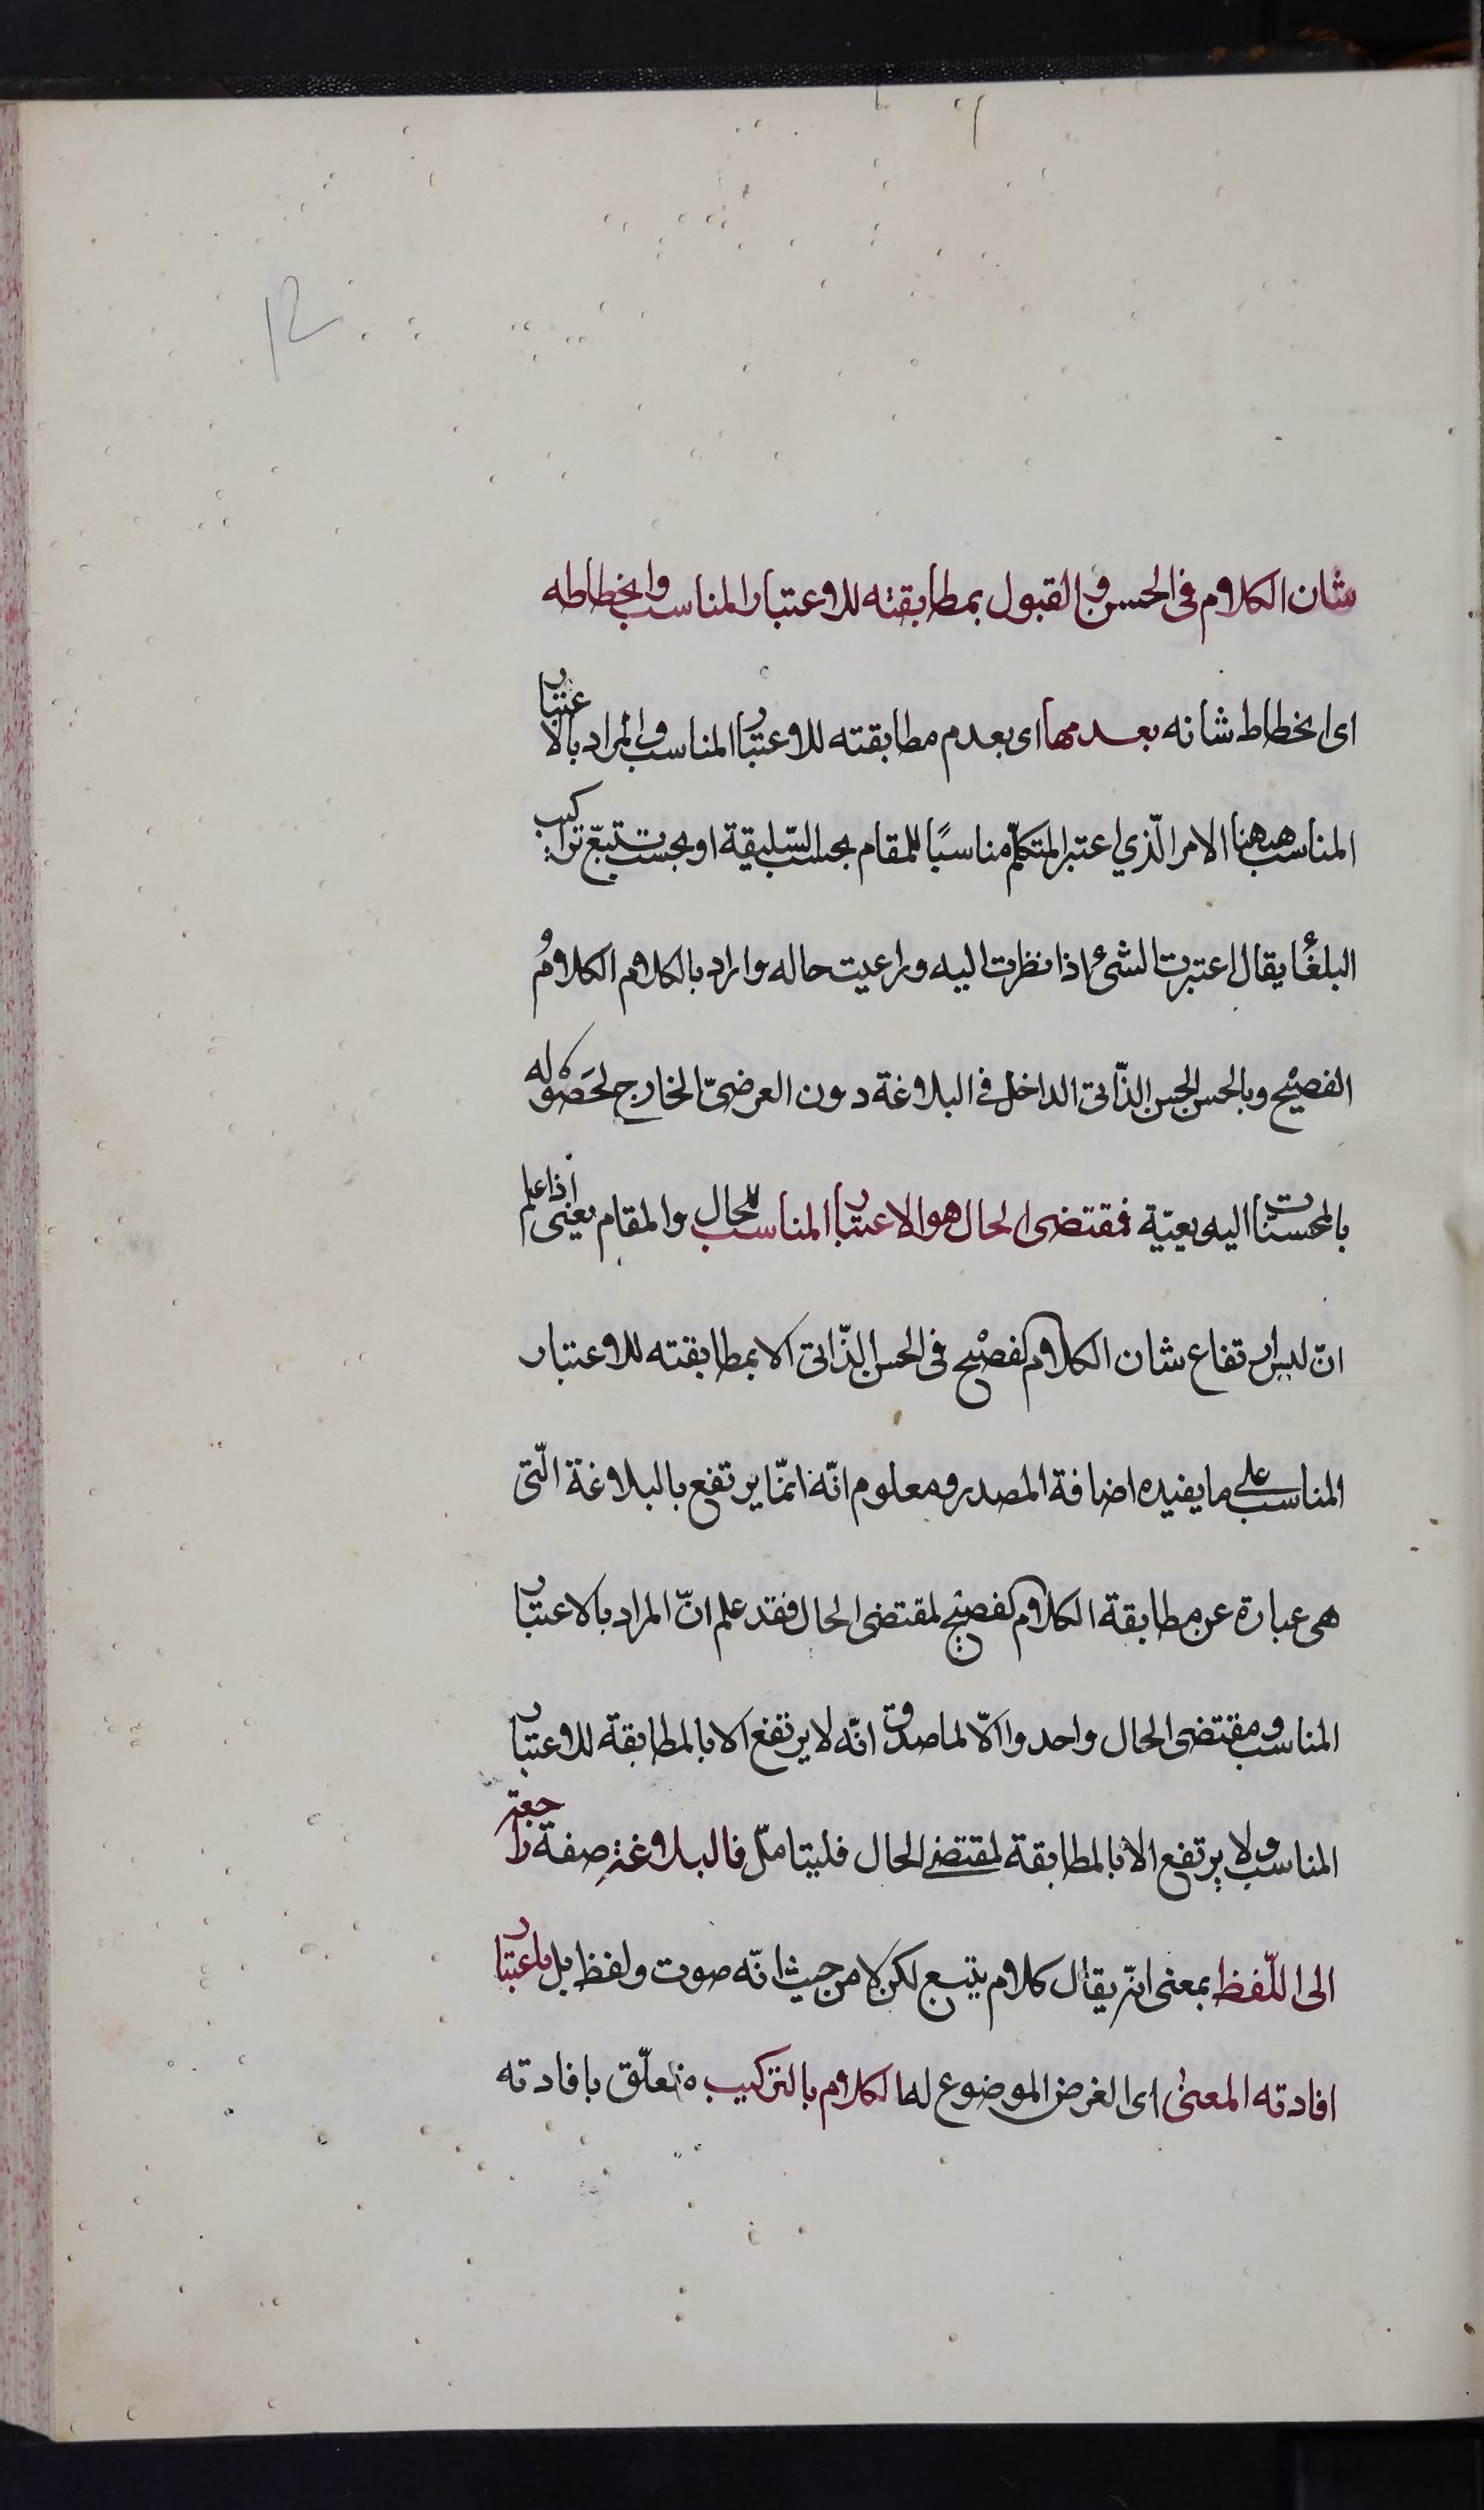 شان الكلام فى الحسن و القبول بمطابقته للاعتبار المناسب وانحطاطه
اى انحطاط شانه بعدمها اى بعدم مطابقته للاعتبار المناسب والمراد بالاعتبار
المناسب ههنا الامر الّذي اعتبر المتكلّم مناسبًا للمقام بحسب السّليقة او بحسب تتبّع تراكيب
البلغٔا يقال اعتبرت الشئ اذا نظرت اليه وراعيت حاله واراد بالكلام الكلامُ
الفصيْح وبالحسن الحسن الذّاتى الداخل فى البلاغة دون العرضىّ الخارج لحَصْوله
بالمحسنات البديعيّة فمقتضى الحال هو الاعتبار المناسب للحال والمقام يعنى اذا علم
انّ ليس ارتفاع شان الكلام لفصيْح فى الحسن الذّاتى الا بمطابقته للاعتبار
المناسب على ما يفيده اضافة المصدر ومعلوم انّه انمّا يرتفع بالبلاغة الّتى
هى عبارة عن مطابقة الكلام لفصيْح لمقتضى الحال فقد علم انّ المراد بالاعتبار
المناسب ومقتضى الحال واحد والّا لما صدق انّه لا يرتفع الا بالمطابقة للاعتبار
المناسب ولا يرتفع الا بالمطابقة لمقتضى الحال فليتامّل فالبلاغة صفة راجعة
الى اللّفظ بمعنى انّه يقال كلام بليغ لكن لا من حيث انّه صوت ولفظ بل باعتبار
افادته المعنىٰ اى الغرض الموضوع له الكلام بالتركيب متعلّق بافادته